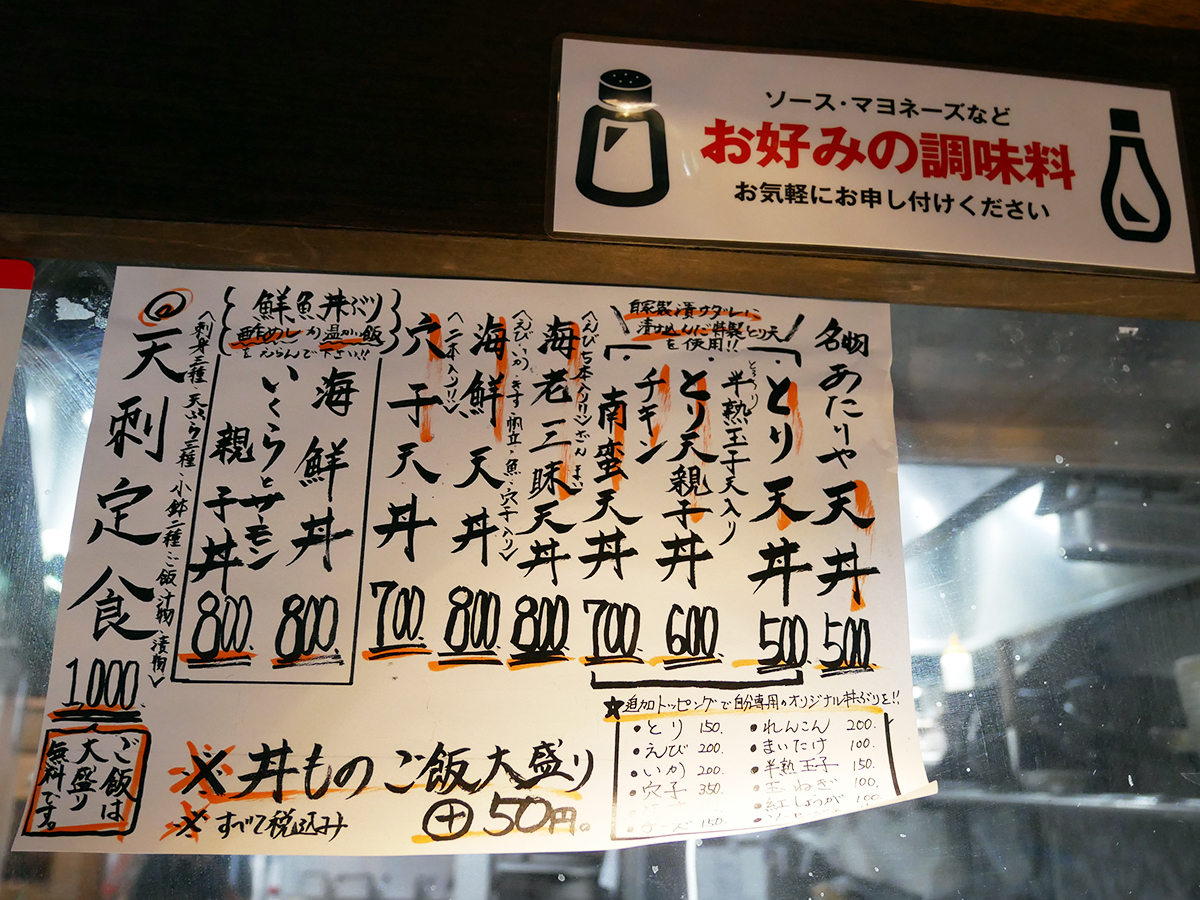 ソース・マヨネーズなど
お好みの調味料
お気軽にお申し付けください
名物 あたりや天丼 500
自家製漬けダレに
漬けこんだ特製とり天
を使用!!
とり天丼 500
半熟玉子天入り
とり天親子丼 600
チキン
南蛮天丼 700
〈えび七本入リ!!〉
海老三昧天丼 800
ざんまい
〈えび・いか・きす・帆立・魚・穴子入リ〉
海鮮天丼 800
〈一本入リ!!〉
穴子天丼 700
鮮魚丼ぶり
酢めしか温かい飯
をえらんで下さい!!
海鮮丼 800
いくらとサーモン
親子丼 800
@天刺定食 1,000
〈刺身三種・天ぷら三種・小鉢二種・ご飯・汁物・漬物〉
ご飯は
大盛り
無料です。
※丼ものご飯大盛り
＋50円。
※すべて税込み
★追加トッピングで自分専用のオリジナル丼ぶりを!!
・とり 150.
・えび 200.
・いか 200.
・穴子 350.
・チーズ 150.
・れんこん 200.
・まいたけ 100.
・半熟玉子 150.
・玉ねぎ 100.
・紅しょうが 100